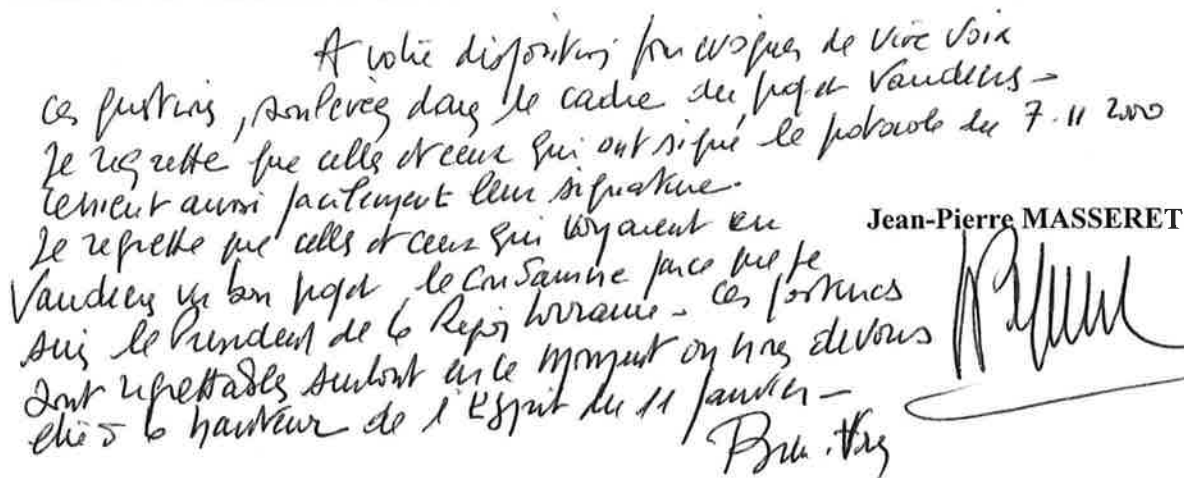 A votre disposition pour évoquer de vive voix
ces questions, soulevées dans le cadre du projet Vandières -
Je regrette que celles et ceux qui ont signé le protocole du 7.11 2000
renient aussi facilement leur signature.
Je regrette que celles et ceux qui voyaient en
Jean-Pierre MASSERET
Vandières un bon projet le condamne parce que je
suis le Président de la Région Lorraine - ces postures
sont regrettables surtout en ce moment où nous devons
être à la hauteur de l'Esprit du 11 janvier -